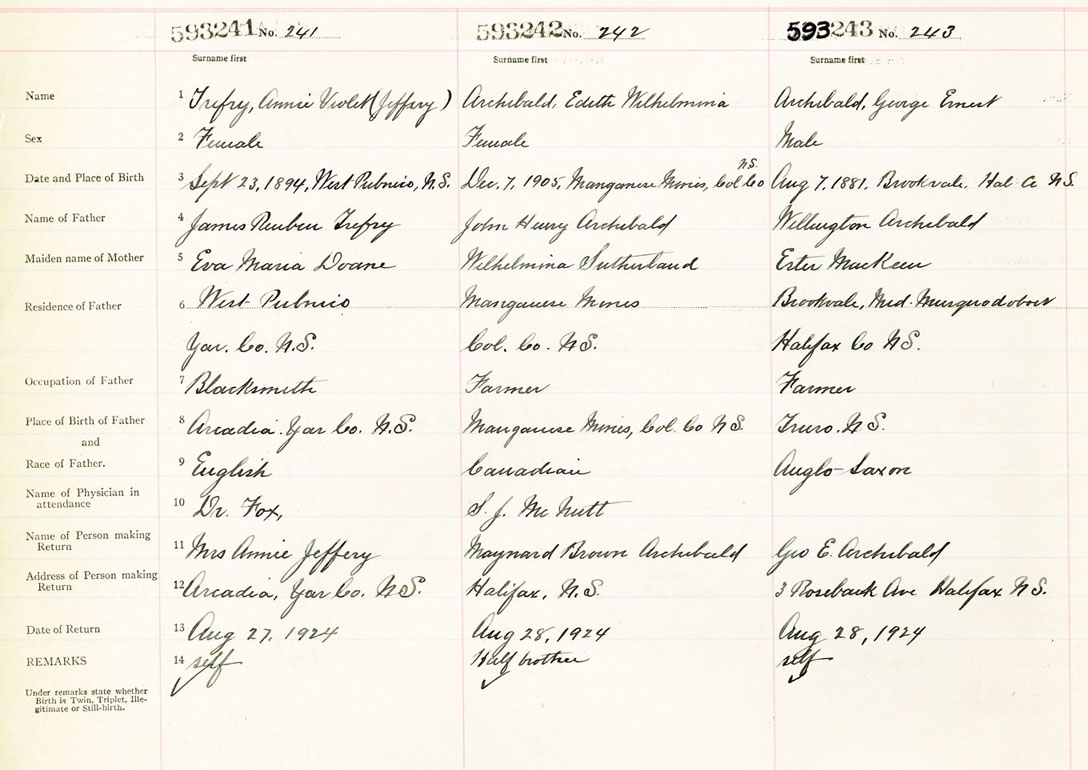 593241 No. 241 593242 No. 242 593243 No. 243
Surname first Surname first Surname first
Name 1 Trefry, Annie Violet (Jeffery) Archibald, Edith Wilhelmina Archibald, George Ernest
Sex 2 Female Female Male
N.S.
Date and Place of Birth 3 Sept 23, 1894, West Pubnico, N.S. Dec. 7, 1905, Manganese Mines, Col Co Aug 7, 1881. Brookvale, Hal Co N.S.
Name of Father 4 James Reuben Trefry John Henry Archibald Willington Archibald
Maiden name of Mother 5 Eva Maria Doane Wilhelmina Sutherland Ester MacKeen
Residence of Father 6 West Pubnico Manganese Mines Brookvale, Mid. Musquodoboit
Yar. Co. N.S. Col. Co. N.S. Halifax Co N.S.
Occupation of Father 7 Blacksmith Farmer Farmer
Place of Birth of Father 8 Arcadia. Yar Co. N.S. Manganese Mines, Col. Co N.S. Truro. N.S.
and
Race of Father. 9 English Canadian Anglo-Saxon
Name of Physician in
attendance 10 Dr. Fox, S. J. McNutt
Name of Person making
Return 11 Mrs Annie Jeffery Maynard Brown Archibald Geo E. Archibald
Address of Person making
Return 12 Arcadia, Yar Co. N.S. Halifax, N.S. 3 Rosebank Ave Halifax N.S.
Date of Return 13 Aug 27, 1924 Aug 28, 1924 Aug 28, 1924
REMARKS 14 self Half brother self
Under remarks state whether
Birth is Twin, Triplet, Ille-
gitimate or Still-birth.